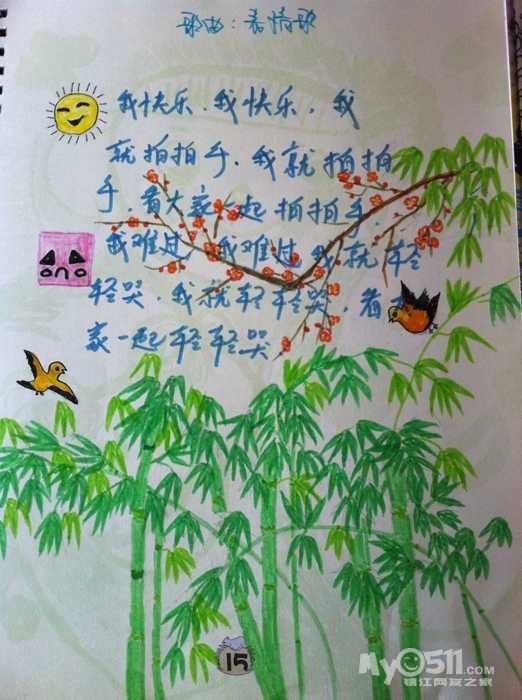 歌曲:表情歌
我快乐.我快乐,我
就拍拍手.我就拍拍
手,看大家一起拍拍手.
我难过,我难过,我就轻
轻哭,我就轻轻哭,看
家一起轻轻哭
15
My0511.com
镇江网友之家